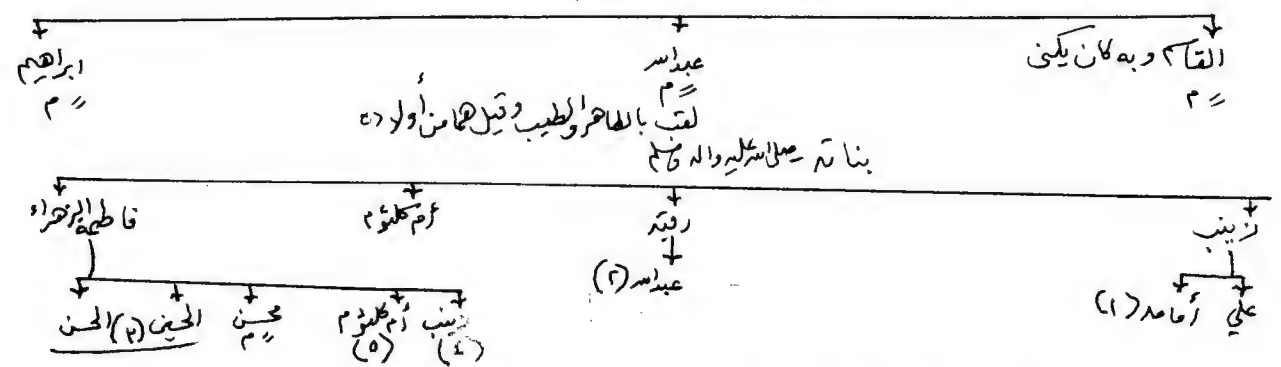 القاسم وبه كان يكنى عبدالله ابراهيم
م م م
لقب بالطاهر والطيب وقيل هما من أولاده
بناته صلى الله عليه واله وسلم
زينب رقية أم كلثوم فاطمة الزهراء
علي أمامه (١) عبدالله (٢) زينب (٤) أم كلثوم (٥) محسن م الحسين (٣) الحسن